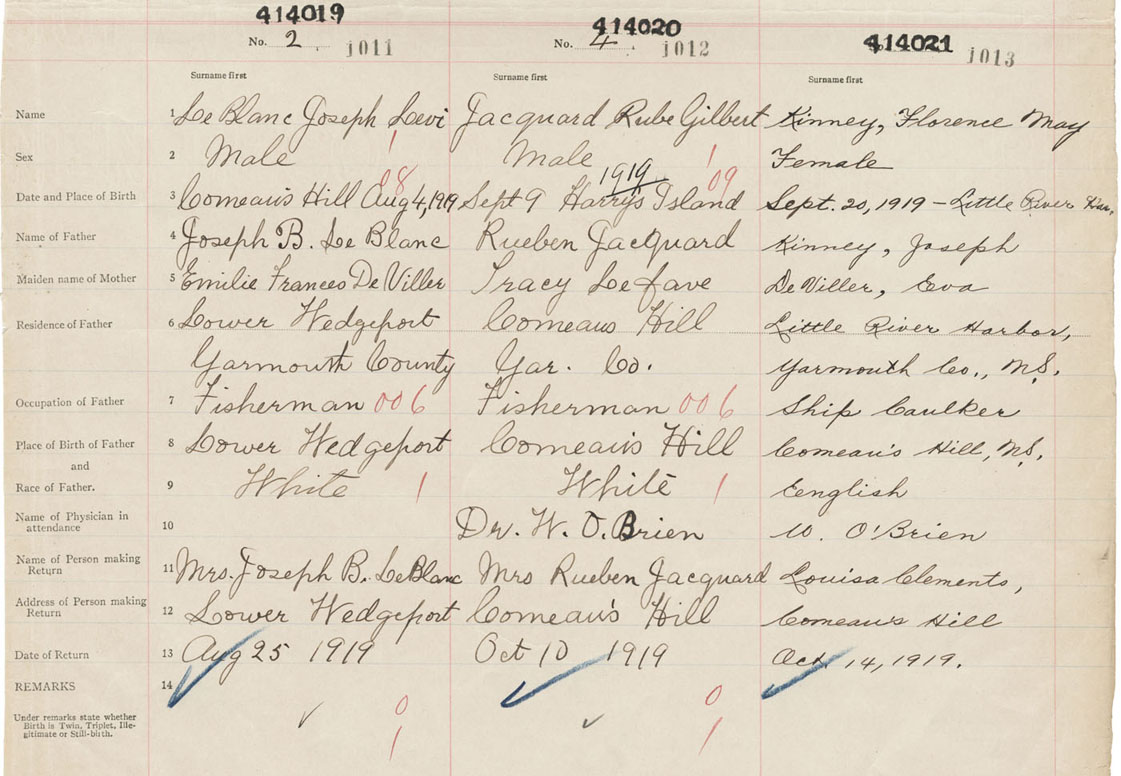 414019 414020 414021
No. 2 1011 No. 4 1012 1013
Surname first Surname first Surname first
Name 1 Le Blanc Joseph Levi Jacquard Rube Gilbert Kinney, Florence May
Sex 2 Male 1 Male 1 Female
1919
08 09
Date and Place of Birth 3 Comeau's Hill Aug 4, 1919 Sept 9 Harry's Island Sept. 20, 1919 – Little River
Name of Father 4 Joseph B. Le Blanc Rueben Jacquard Kinney, Joseph
Maiden name of Mother 5 Emilie Frances De Viller Tracy Lefave De Viller, Eva
Residence of Father 6 Lower Wedgeport Comeaus Hill Little River Harbor,
Yarmouth County Yar. Co. Yarmouth Co., N.S.
Occupation of Father 7 Fisherman 006 Fisherman 006 Ship Caulker
Place of Birth of Father 8 Lower Wedgeport Comeau's Hill Comeau's Hill, N.S.
and
Race of Father. 9 White 1 White 1 Eenglish
Name of Physician in
attendance 10 Dr. W. O. Brien W. O'Brien
Name of Person making
Return 11 Mrs. Joseph B. LeBlanc Mrs Rueben Jacquard Louisa Clements,
Address of Person making
Return 12 Lower Wedgeport Comeau's Hill Comeau's Hill
Date of Return 13 Aug 25 1919 Oct 10 1919 Oct. 14, 1919.
REMARKS 14
0 0
Under remarks state whether
Birth is Twin, Triplet, Ille-
gitimate or Still-birth.
1 1